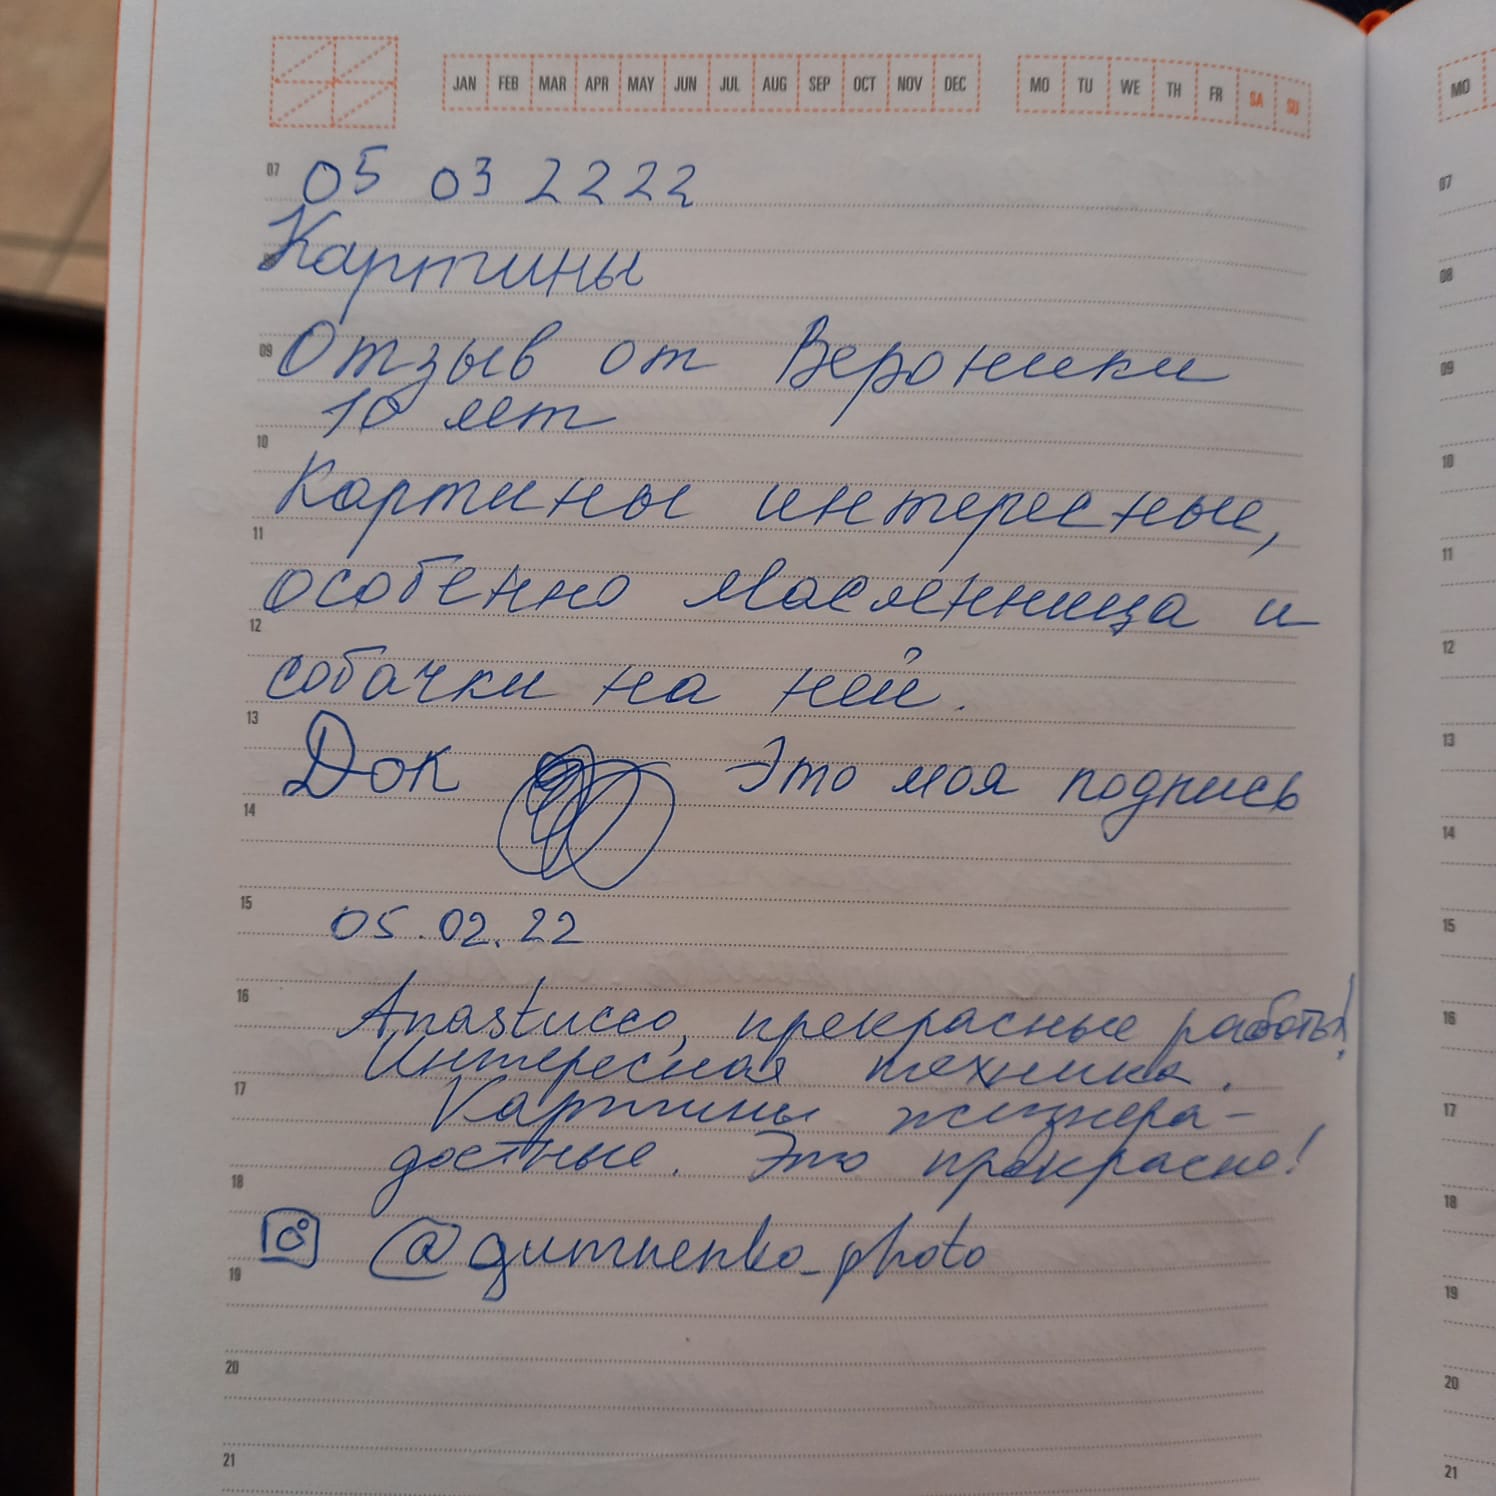 JAN FEB MAR APR MAY JUN JUL AUG SEP OCT NOV DEC MO TU WE TH FR SA SU
MO
07 05 03 2222
07
Картины
08
09 Отзыв от Вероники
09
10 лет
10
10
Картины интересные,
11
11
особенно Масленница и
12
12
собачки на ней.
13
13
Док Это моя подпись
14
14
15
15
05.02.22
16
16
Anastucco, прекрасные работы!
Интересная техника.
17
17
Картины жизнера-
достные. Это прекрасно!
18
18
@gumnenko_photo
19
19
20
20
21
21